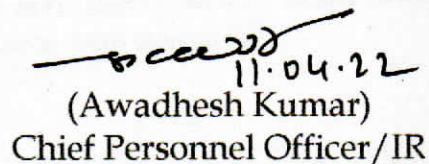 11.04.22
(Awadhesh Kumar)
Chief Personnel Officer/IR